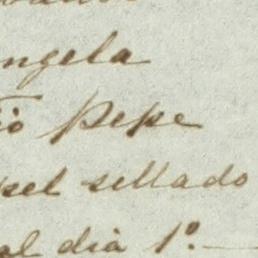 ngela
io Pepe
pel sellado
al dia 1º.